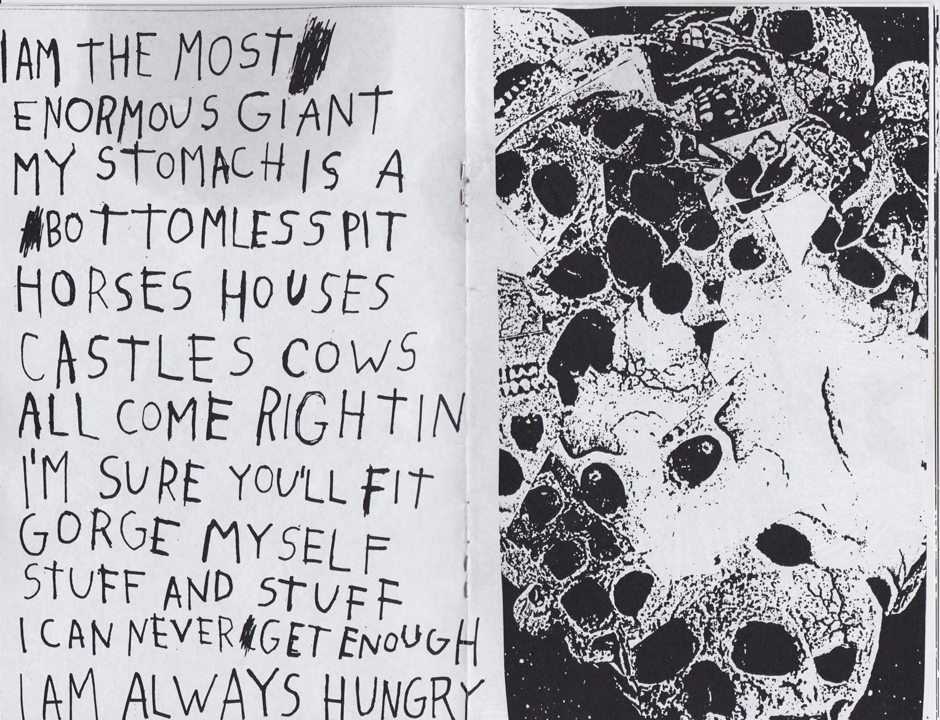 I AM THE MOST
ENORMOUS GIANT
MY STOMACH IS A
BOTTOMLESS PIT
HORSES HOUSES
CASTLES COWS
ALL COME RIGHT IN
I'M SURE YOU'LL FIT
GORGE MYSELF
STUFF AND STUFF
I CAN NEVER GET ENOUGH
I AM ALWAYS HUNGRY